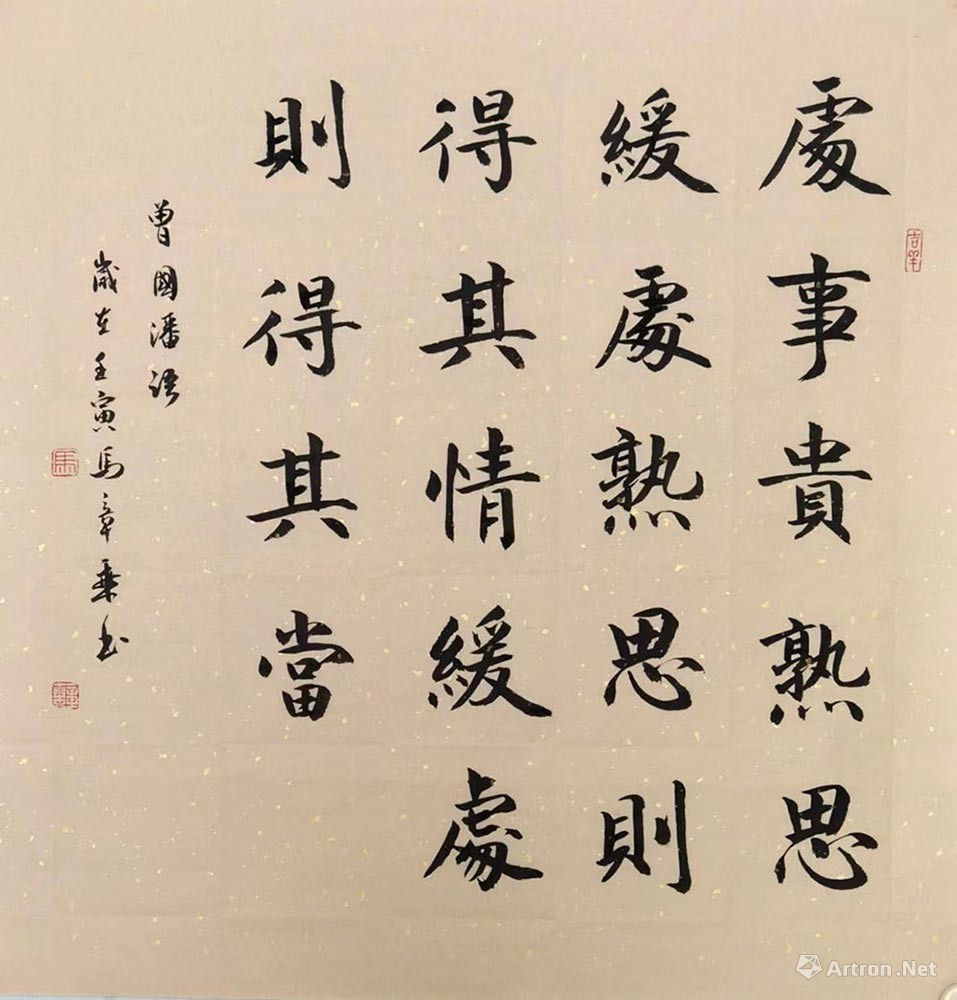 處事貴熟思
緩處熟思則
得其情緩處
則得其當
曾國潘語
歲在壬寅馬章乘書
吉羊
馬
Artron.Net